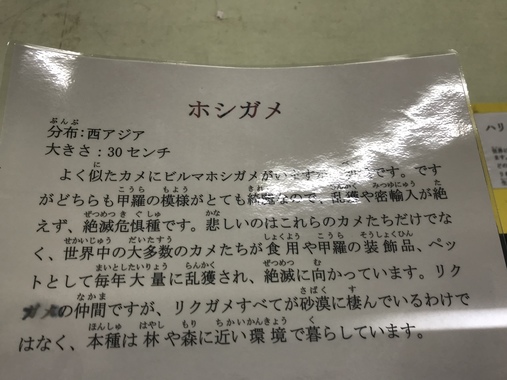 ホシガメ
分布：西アジア
大きさ：30センチ
よく似たカメにビルマホシガメがいます
です。です
がどちらも甲羅の模様がとても綺麗なので、乱獲や密輸入が絶
えず、絶滅危惧種です。悲しいのはこれらのカメたちだけでな
く、世界中の大多数のカメたちが食用や甲羅の装飾品、ペッ
トとして毎年大量に乱獲され、絶滅に向かっています。リク
ガメの仲間ですが、リクガメすべてが砂漠に棲んでいるわけで
はなく、本種は林や森に近い環境で暮らしています。
ハリ